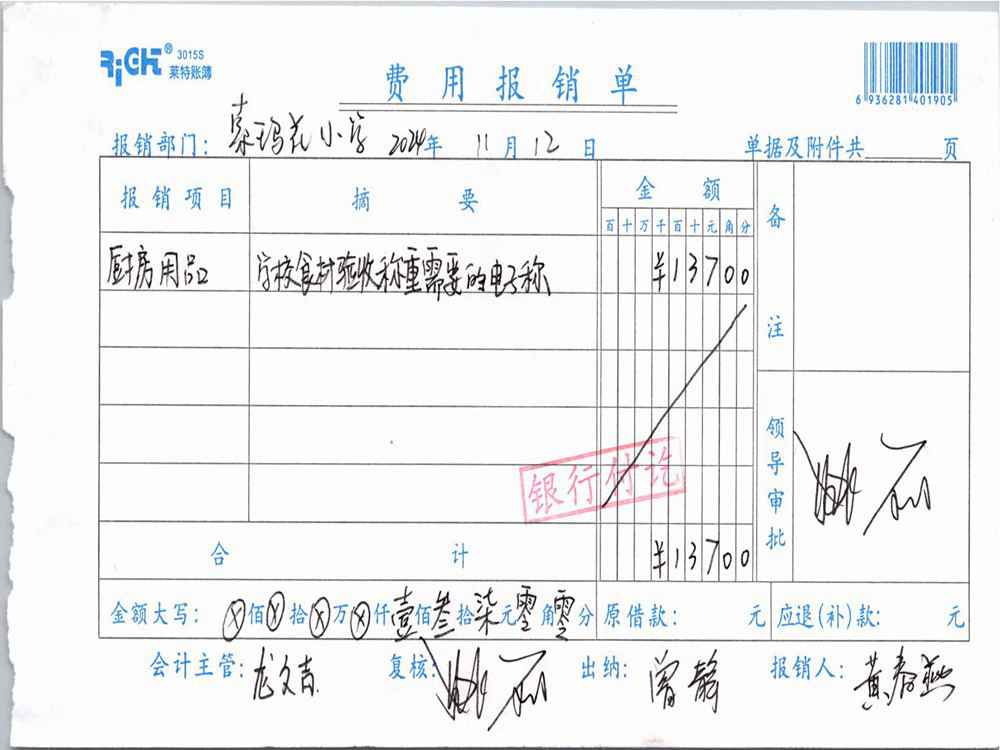 RiGHT® 3015S
莱特账簿
费用报销单
6 936281 401905
报销部门：慕玛花小学 2024年 11月12日 单据及附件共 页
报销项目 摘要 金额 备注
百十万千百十元角分
厨房用品 学校食材验收称重需要的电子称 ¥13700
银行付讫
领导审批
合计 ¥13700
金额大写：ⓧ佰ⓧ拾ⓧ万ⓧ仟壹佰叁拾柒元零角零分 原借款： 元 应退(补)款： 元
会计主管：龙文吉 复核： 出纳：曾静 报销人：黄春燕